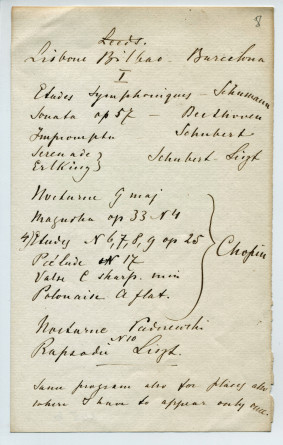 8
Leeds.
Lisbone Bilbao - Barcelona
I
Etudes Symphoniques - Schumann
Sonata op 57 - Beethoven
Impromptu Schubert
Serenade } Schubert-Liszt
Erlking }
Nocturne G maj
Mazurka op 33 N 4
4) Etudes N 6, 7, 8, 9 op 25
Prelude N 17
Valse C sharp. min
Polonaise A flat.
} Chopin
Nocturne Paderewski
Rapsodie N10 Liszt.
Same program also for places also
where I have to appear only once.